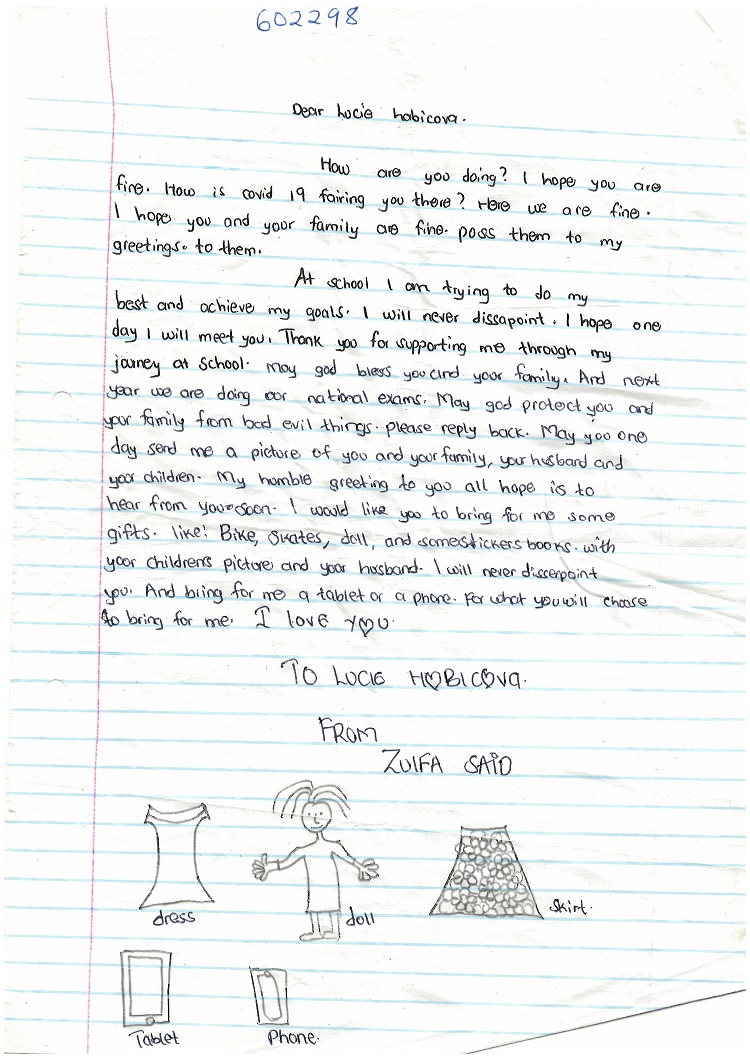 602298
Dear Lucie hobicova.
How are you doing? I hope you are
fine. How is covid 19 fairing you there? Here we are fine.
I hope you and your family are fine. pass them to my
greetings. to them.
At school I am trying to do my
best and achieve my goals. I will never dissapoint. I hope one
day I will meet you. Thank you for supporting me through my
journey at school. May god bless you and your family. And next
year we are doing our national exams. May god protect you and
your family from bad evil things. please reply back. May you one
day send me a picture of you and your family, your husband and
your children. My humble greeting to you all hope is to
hear from you soon. I would like you to bring for me some
gifts. like: Bike, skates, doll, and some stickers books. with
your children's picture and your husband. I will never disserpoint
you. And bring for me a tablet or a phone. For what you will choose
to bring for me. I love y♡u.
TO LUCIE H♡BIC♡Va.
FROM
ZULFA SAID
dress
doll
skirt.
Tablet
Phone.